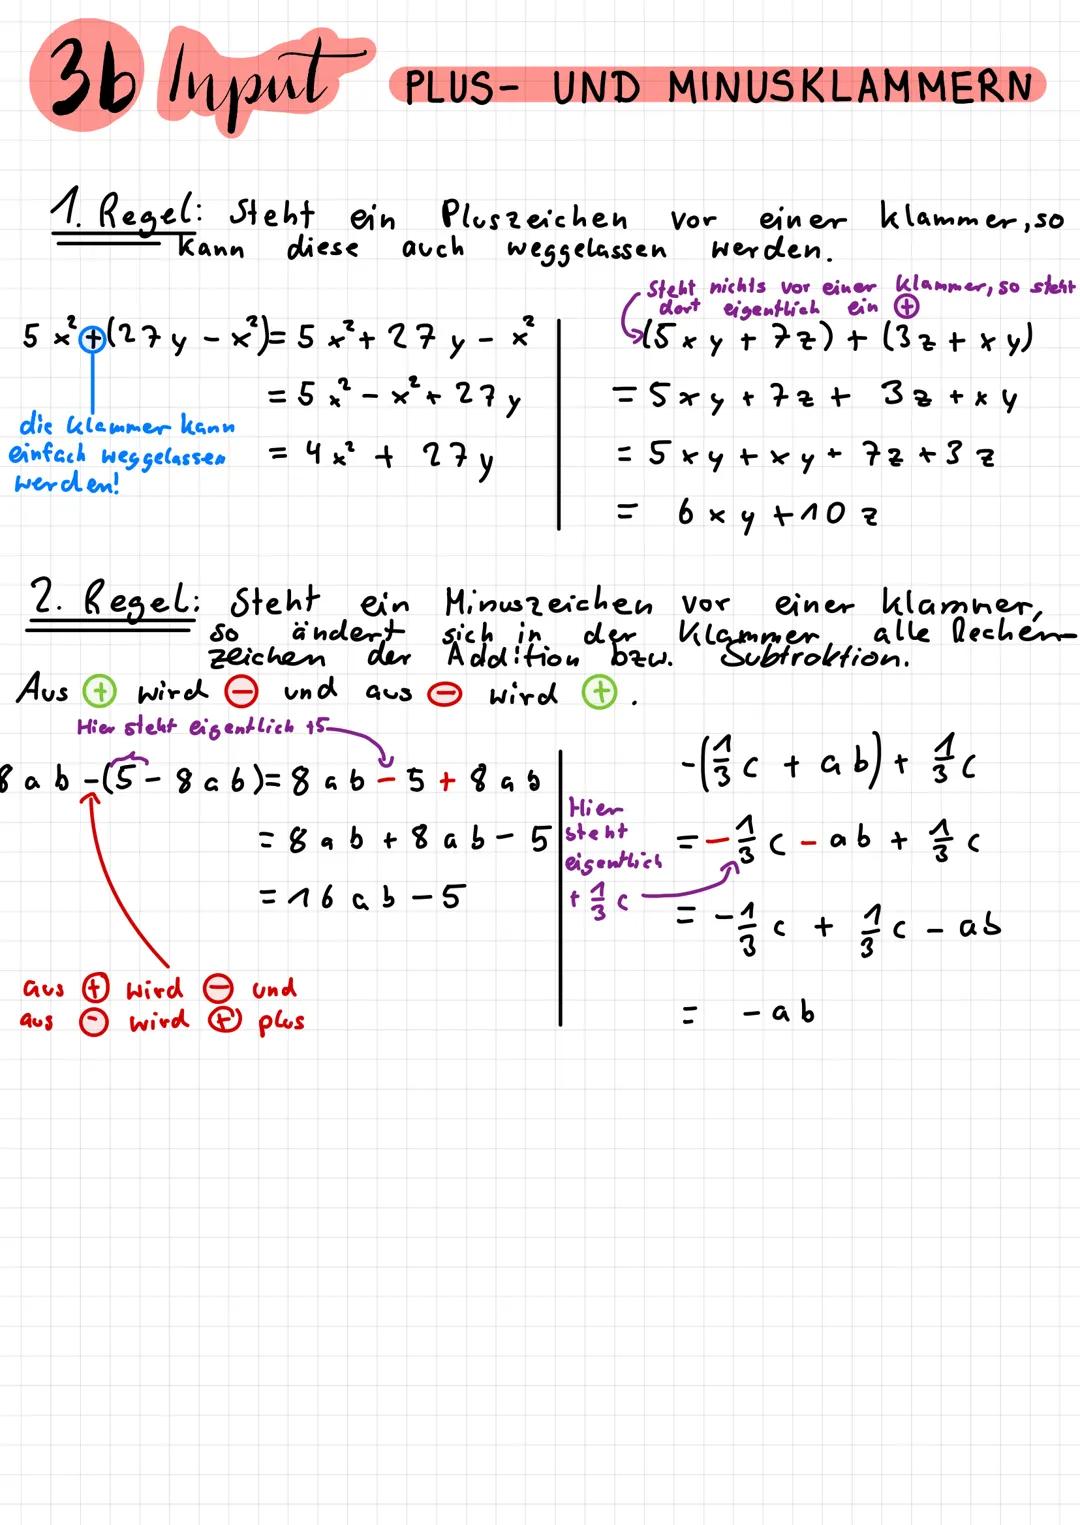 3b Input PLUS- UND MINUSKLAMMERN
1. Regel: Steht ein Pluszeichen vor einer Klammer, so
kann diese auch weggelassen werden.
Steht nichts vor einer Klammer, so steht
dort eigentlich ein ⊕
5x²⊕(27y - x²) = 5x² + 27y - x²
= 5x² - x² + 27y
= 4x² + 27y
die Klammer kann
einfach weggelassen
werden!
(5xy + 7z) + (3z + xy)
= 5xy + 7z + 3z + xy
= 5xy + xy + 7z + 3z
= 6xy + 10z
2. Regel: Steht ein Minuszeichen vor einer Klammer,
so ändert sich in der Klammer alle Rechen-
zeichen der Addition bzw. Subtraktion.
Aus ⊕ wird ⊖ und aus ⊖ wird ⊕.
Hier steht eigentlich +5
8ab - (5 - 8ab) = 8ab - 5 + 8ab
= 8ab + 8ab - 5
= 16ab - 5
aus ⊕ wird ⊖ und
aus ⊖ wird ⊕ plus
-(1/3 c + ab) + 1/3 c
= -1/3 c - ab + 1/3 c
= -1/3 c + 1/3 c - ab
= -ab
Hier
steht
eigentlich
+ 1/3 c